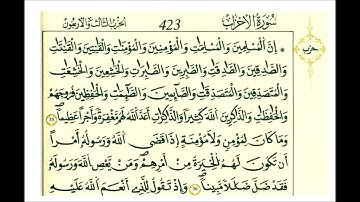 سُورَةُ الْأَحْزَابِ 423 الحزب الثالث والأربعون
حزب
إِنَّ الْمُسْلِمِينَ وَالْمُسْلِمَاتِ وَالْمُؤْمِنِينَ وَالْمُؤْمِنَاتِ وَالْقَانِتِينَ وَالْقَانِتَاتِ
وَالصَّادِقِينَ وَالصَّادِقَاتِ وَالصَّابِرِينَ وَالصَّابِرَاتِ وَالْخَاشِعِينَ وَالْخَاشِعَاتِ
وَالْمُتَصَدِّقِينَ وَالْمُتَصَدِّقَاتِ وَالصَّائِمِينَ وَالصَّائِمَاتِ وَالْحَافِظِينَ فُرُوجَهُمْ
وَالْحَافِظَاتِ وَالذَّاكِرِينَ اللَّهَ كَثِيرًا وَالذَّاكِرَاتِ أَعَدَّ اللَّهُ لَهُمْ مَغْفِرَةً وَأَجْرًا عَظِيمًا
وَمَا كَانَ لِمُؤْمِنٍ وَلَا مُؤْمِنَةٍ إِذَا قَضَى اللَّهُ وَرَسُولُهُ أَمْرًا
أَنْ تَكُونَ لَهُمُ الْخِيَرَةُ مِنْ أَمْرِهِمْ وَمَنْ يَعْصِ اللَّهَ وَرَسُولَهُ
فَقَدْ ضَلَّ ضَلَالًا مُبِينًا وَإِذْ تَقُولُ لِلَّذِي أَنْعَمَ اللَّهُ عَلَيْهِ